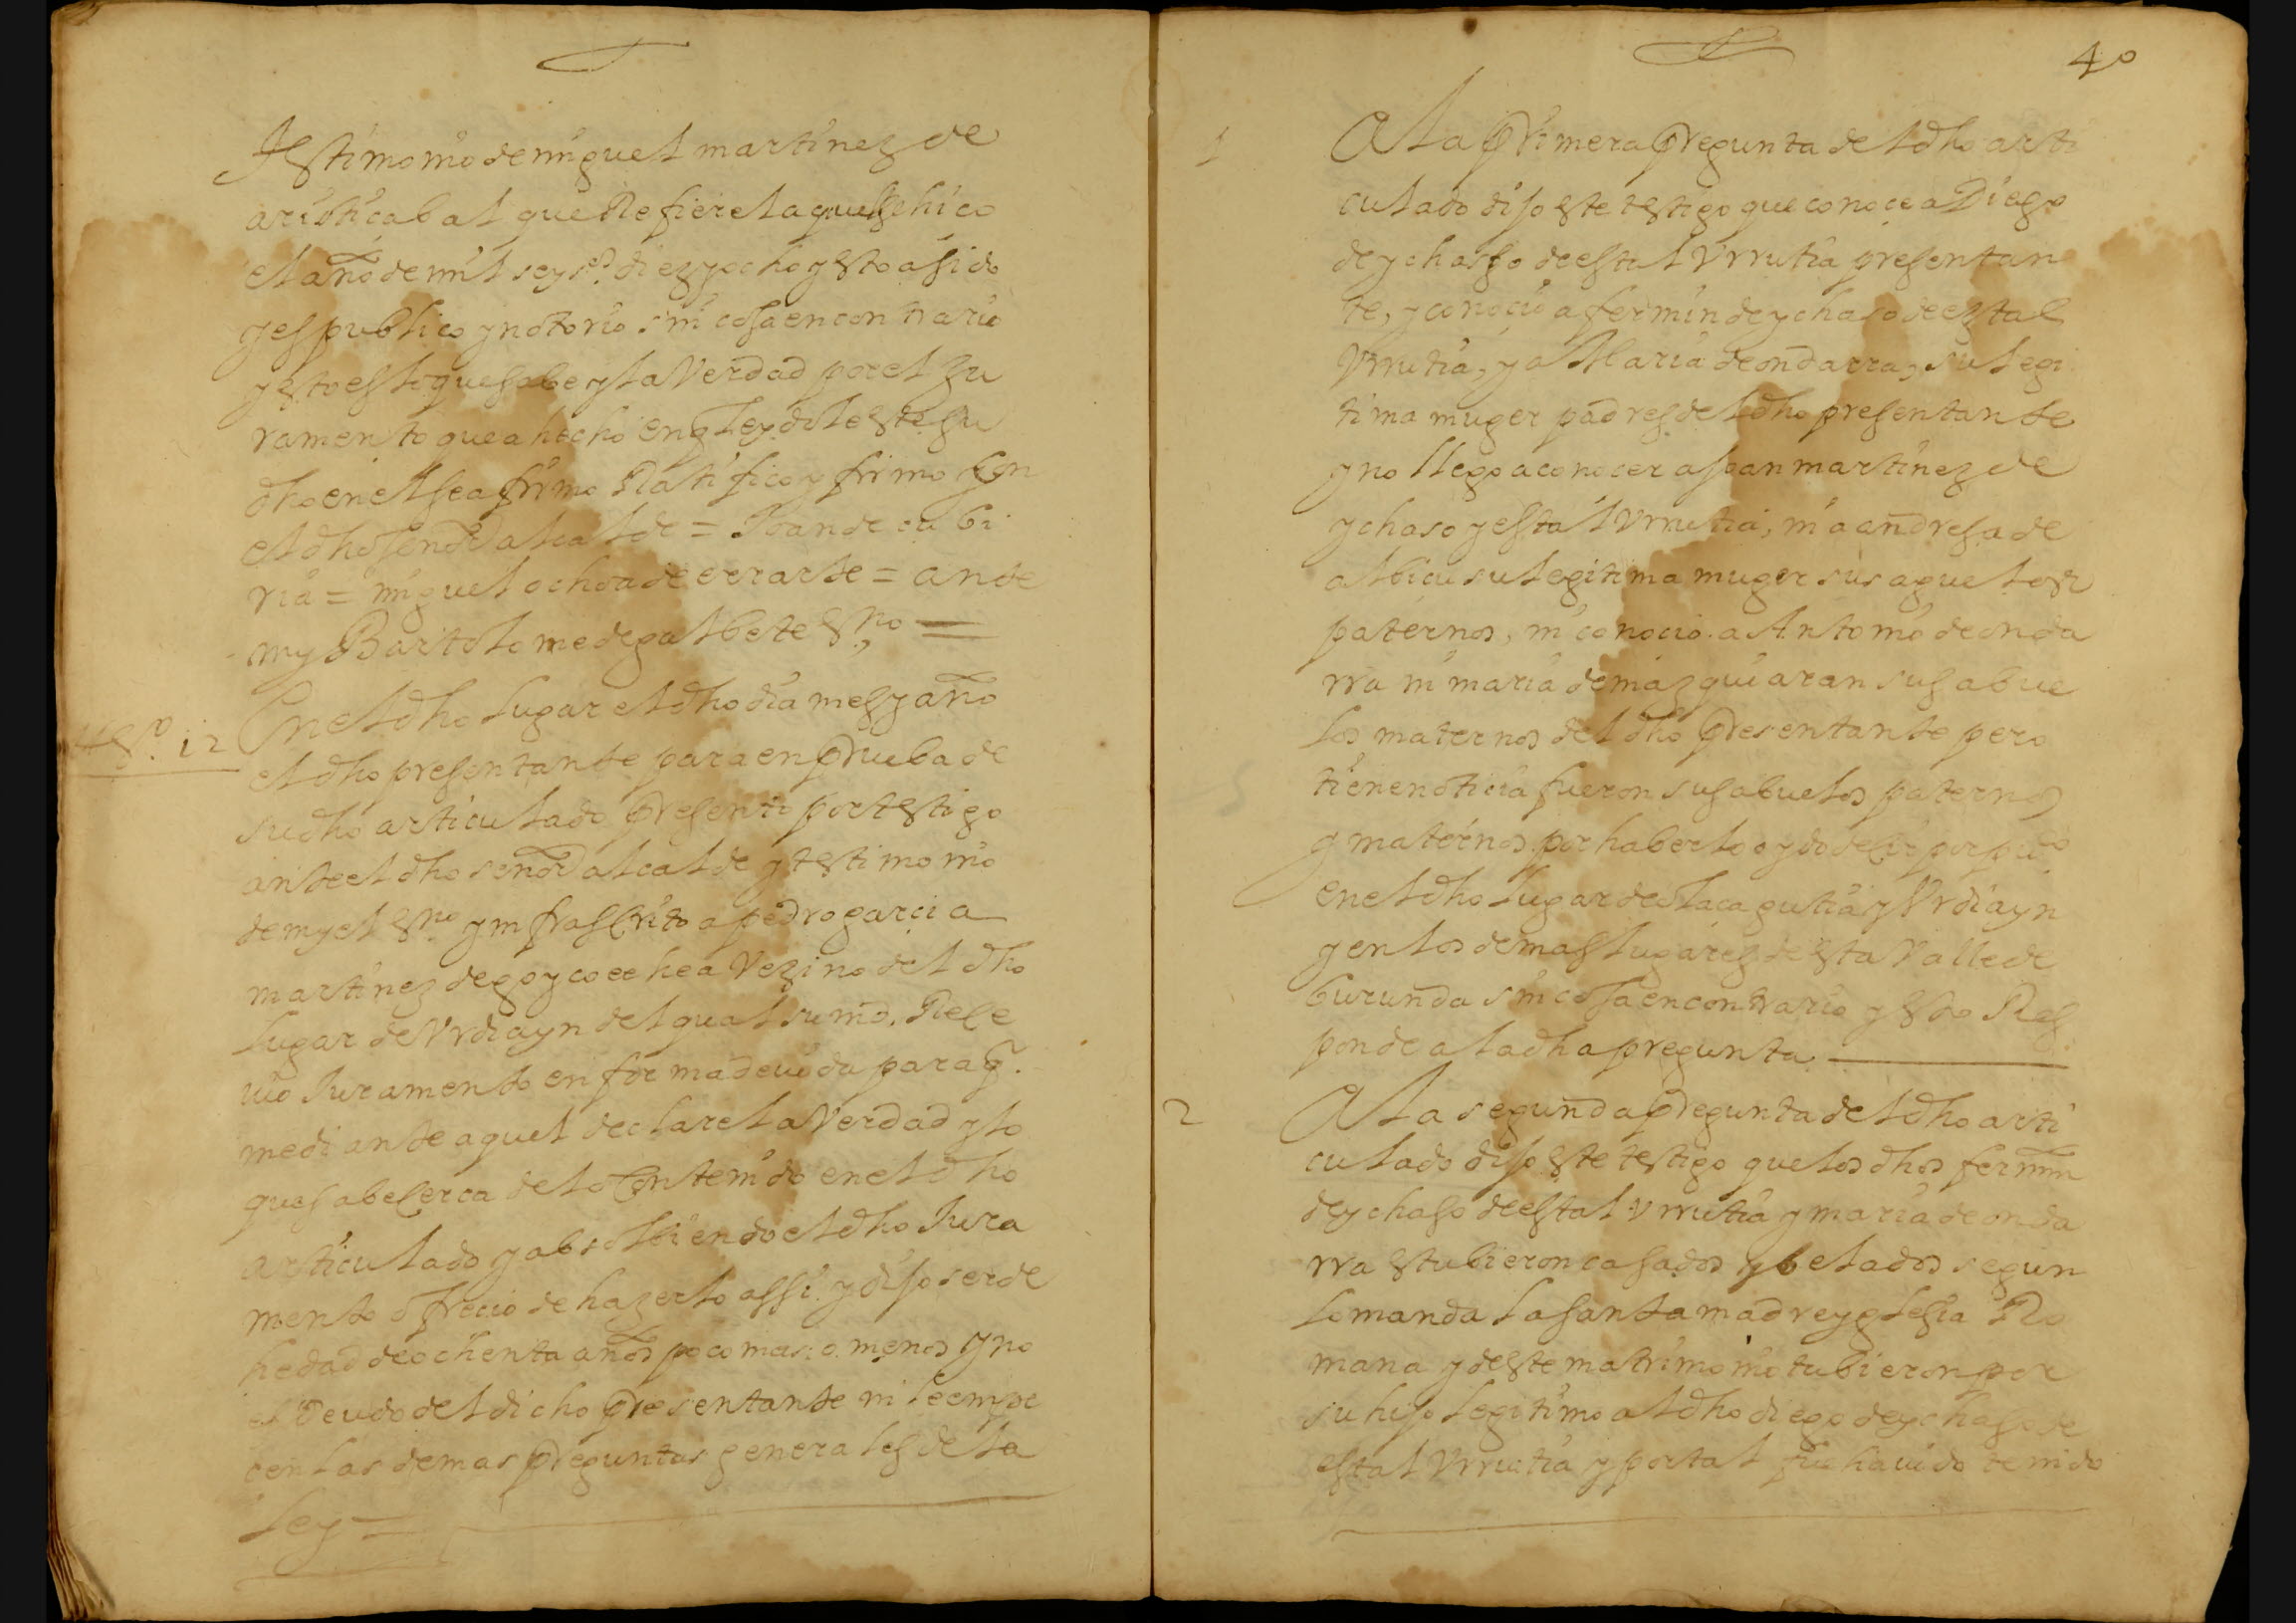 testimonio de miguel martinez de
aristicabal que Refiere la que se hiço
el año de mil seys.os diez y ocho y esto a sido
y es publico y notorio sin cosa en contrario
y esto es lo que sabe y la Verdad por el Ju
ramento que a hecho en q leydole este su
dho en el se afirmo Ratifico y firmo Con
el dho señor alcalde = Joan de cubi
ria = miguel ochoa de errarte = ante
my Bartolome de galbete Es.no =
test.o 12
En el dho lugar el dho dia mes y año
el dho presentante para en prueba de
su dho articulado presento por testigo
ante el dho señor alcalde y testimonio
de my el es.no ynfrascrito a pedro garcia
martinez de goycoechea Vezino del dho
lugar de Vrdiayn del qual su md. Rece
uio Juramento en forma deuida para q.
mediante aquel declare la Verdad y lo
que sabe cerca de lo Contenido en el dho
articulado y absolbiendo el dho Jura
mento ofrecio de hazerlo assi. y dijo ser de
hedad de ochenta años poco mas: o menos y no
es Deudo del dicho presentante ni le empe
cen las demas preguntas generales de la
Ley =
40
1
A la primera pregunta del dho arti
culado dijo este testigo que conoce a Diego
de ychasso de estal Vrrutia presentan
te, y conocio a fermin de ychaso de eztal
Vrrutia, y a Maria de ondarra, su legi
tima muger padres del dho presentante
y no llego a conocer a Joan martinez de
ychaso y estal Vrrutia, ni a andresa de
albicu su legitima muger sus aguelos
paternos, ni conocio a Antonio de onda
rra ni maria de mazquiaran sus abue
los maternos del dho presentante pero
tiene noticia fueron sus abuelos paternos
y maternos por haberlo oydo decir por pu.co
en el dho lugar de olaçagutia y Vrdiayn
y en los demas lugares de esta Valle de
burunda sin cosa en contrario y esto Res
ponde a la dha pregunta
2
A la segunda pregunta del dho arti
culado dijo este testigo que los dhos fermin
de ychaso de estal Vrrutia y maria de onda
rra estubieron casados y belados segun
lo manda la santa madre yglesia Ro
mana y de este matrimonio tubieron por
su hijo legitimo al dho diego de ychaso de
estal Vrrutia y por tal fue hauido tenido